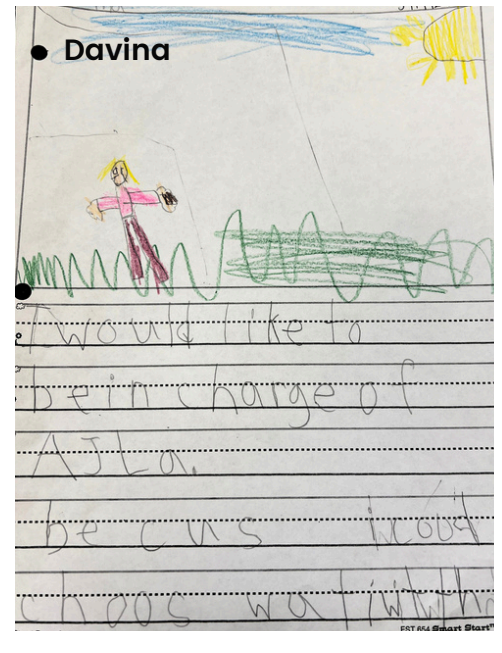 Davina
I would like to
be in charge of
AJLA.
be cus
choos wat
EST 654 Smart Start™